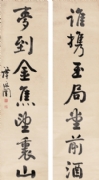 誰携玉局堂前酒
夢到金焦望裏山
澤闓